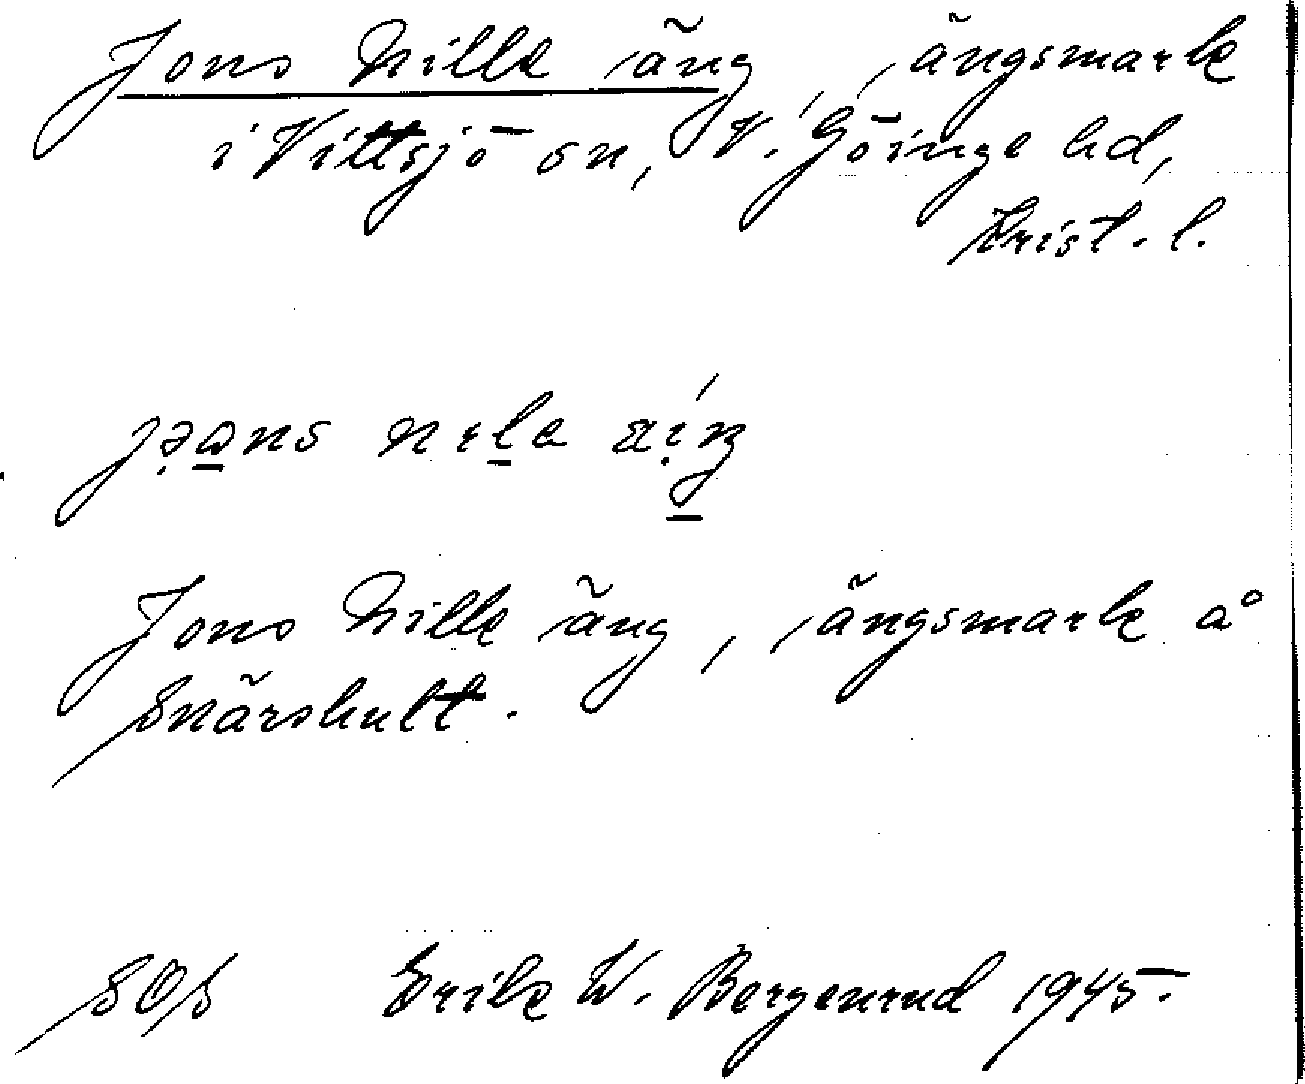 Jons Nille äng, ängsmark
i Vittsjö sn, V. Göinge hd,
Krist. l.
Jons Nille äng, ängsmark å
Snärshult.
SOS Erik W. Bergenrud 1945.